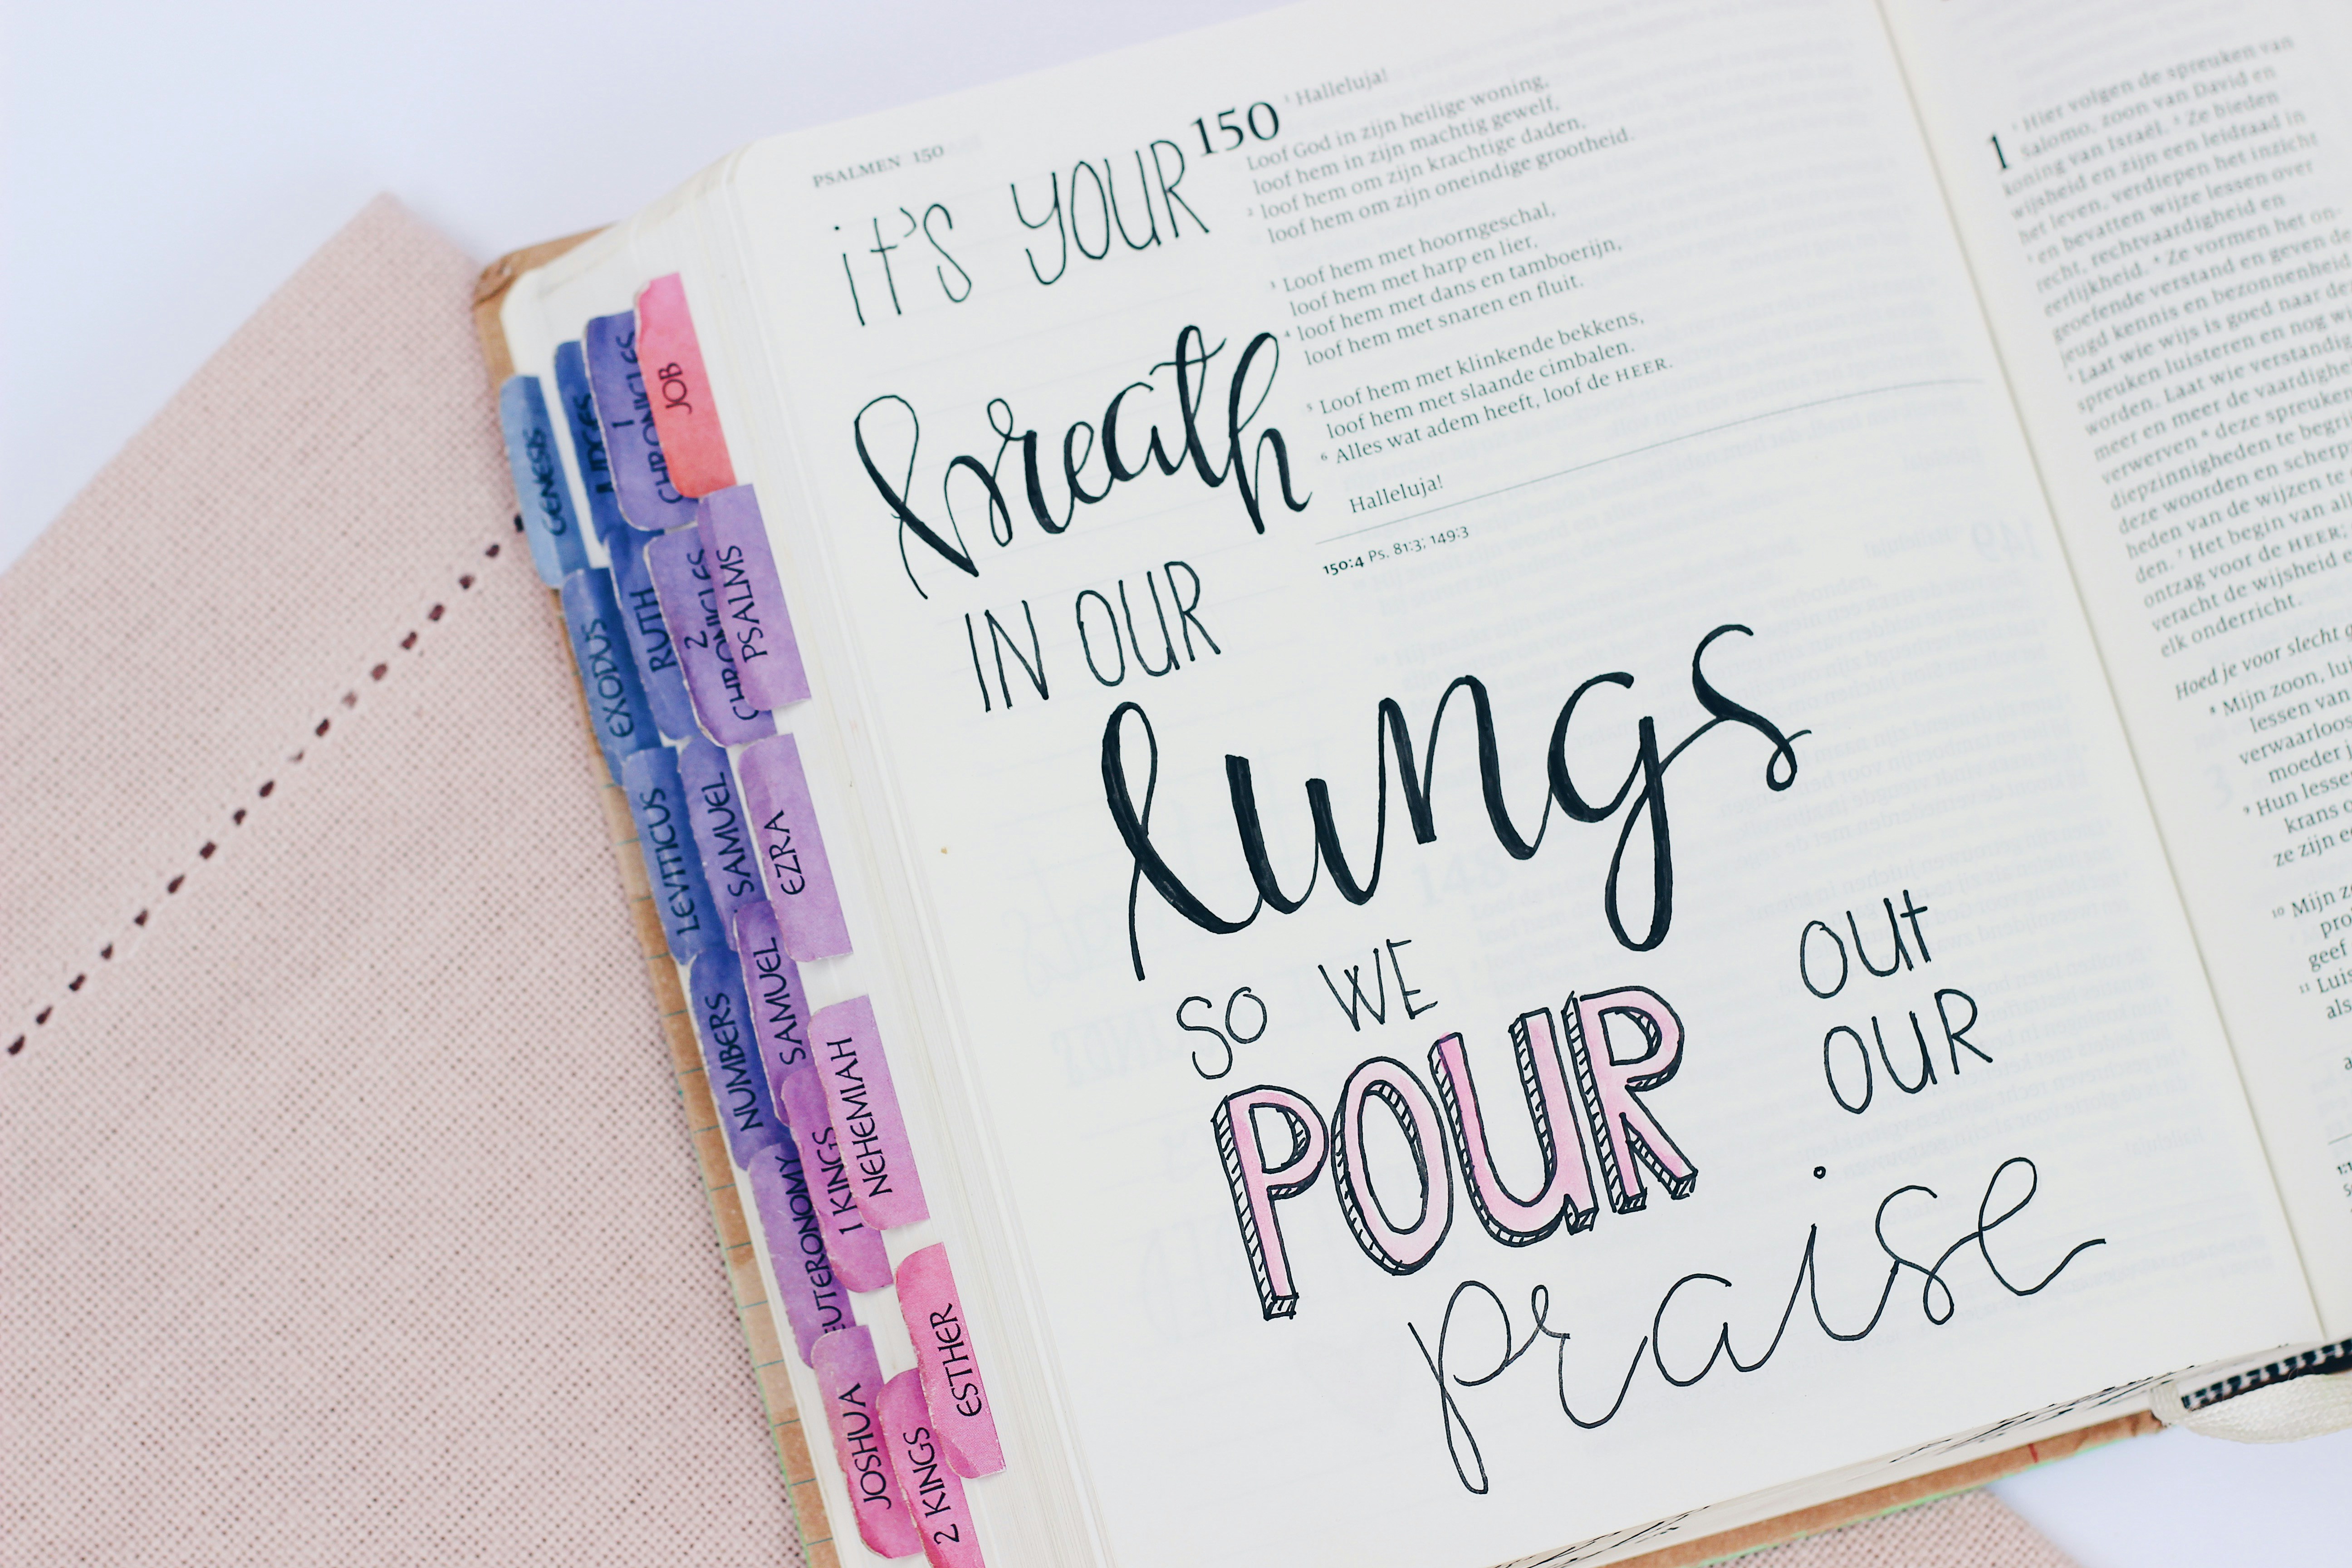 PSALMEN 150
150
¹ Halleluja!
Loof God in zijn heilige woning,
loof hem in zijn machtig gewelf,
² loof hem om zijn krachtige daden,
loof hem om zijn oneindige grootheid.
³ Loof hem met hoorngeschal,
loof hem met harp en lier,
⁴ loof hem met dans en tamboerijn,
loof hem met snaren en fluit.
⁵ Loof hem met klinkende bekkens,
loof hem met slaande cimbalen.
⁶ Alles wat adem heeft, loof de HEER.
Halleluja!
150:4 Ps. 81:3; 149:3
it's YOUR
breath
IN OUR
lungs
SO WE
POUR
OUt
OUR
praise
GENESIS
EXODUS
LEVITICUS
NUMBERS
JOSHUA
JUDGES
RUTH
SAMUEL
SAMUEL
1 KINGS
2 KINGS
1 CHRONICLES
2 CHRONICLES
EZRA
NEHEMIAH
ESTHER
JOB
PSALMS
1
¹ Hier volgen de spreuken van
Salomo, zoon van David en
koning van Israël. ² Ze bieden
wijsheid en zijn een leidraad in
het leven, verdiepen het inzicht
³ en bevatten wijze lessen over
recht, rechtvaardigheid en
eerlijkheid. ⁴ Ze vormen het on-
geoefende verstand en geven de
jeugd kennis en bezonnenheid
⁵ Laat wie wijs is goed naar de
spreuken luisteren en nog
worden. Laat wie verstandig
meer en meer de vaardighe
verwerven ⁶ deze spreuken
diepzinnigheden te begri
deze woorden en scherp
heden van de wijzen te
den. ⁷ Het begin van al
ontzag voor de HEER.
veracht de wijsheid e
elk onderricht.
Hoed je voor slecht
⁸ Mijn zoon, lui
lessen van
verwaarloos
moeder j
⁹ Hun lesse
krans
ze zijn e
¹⁰ Mijn z
geef
¹¹ Luis
als